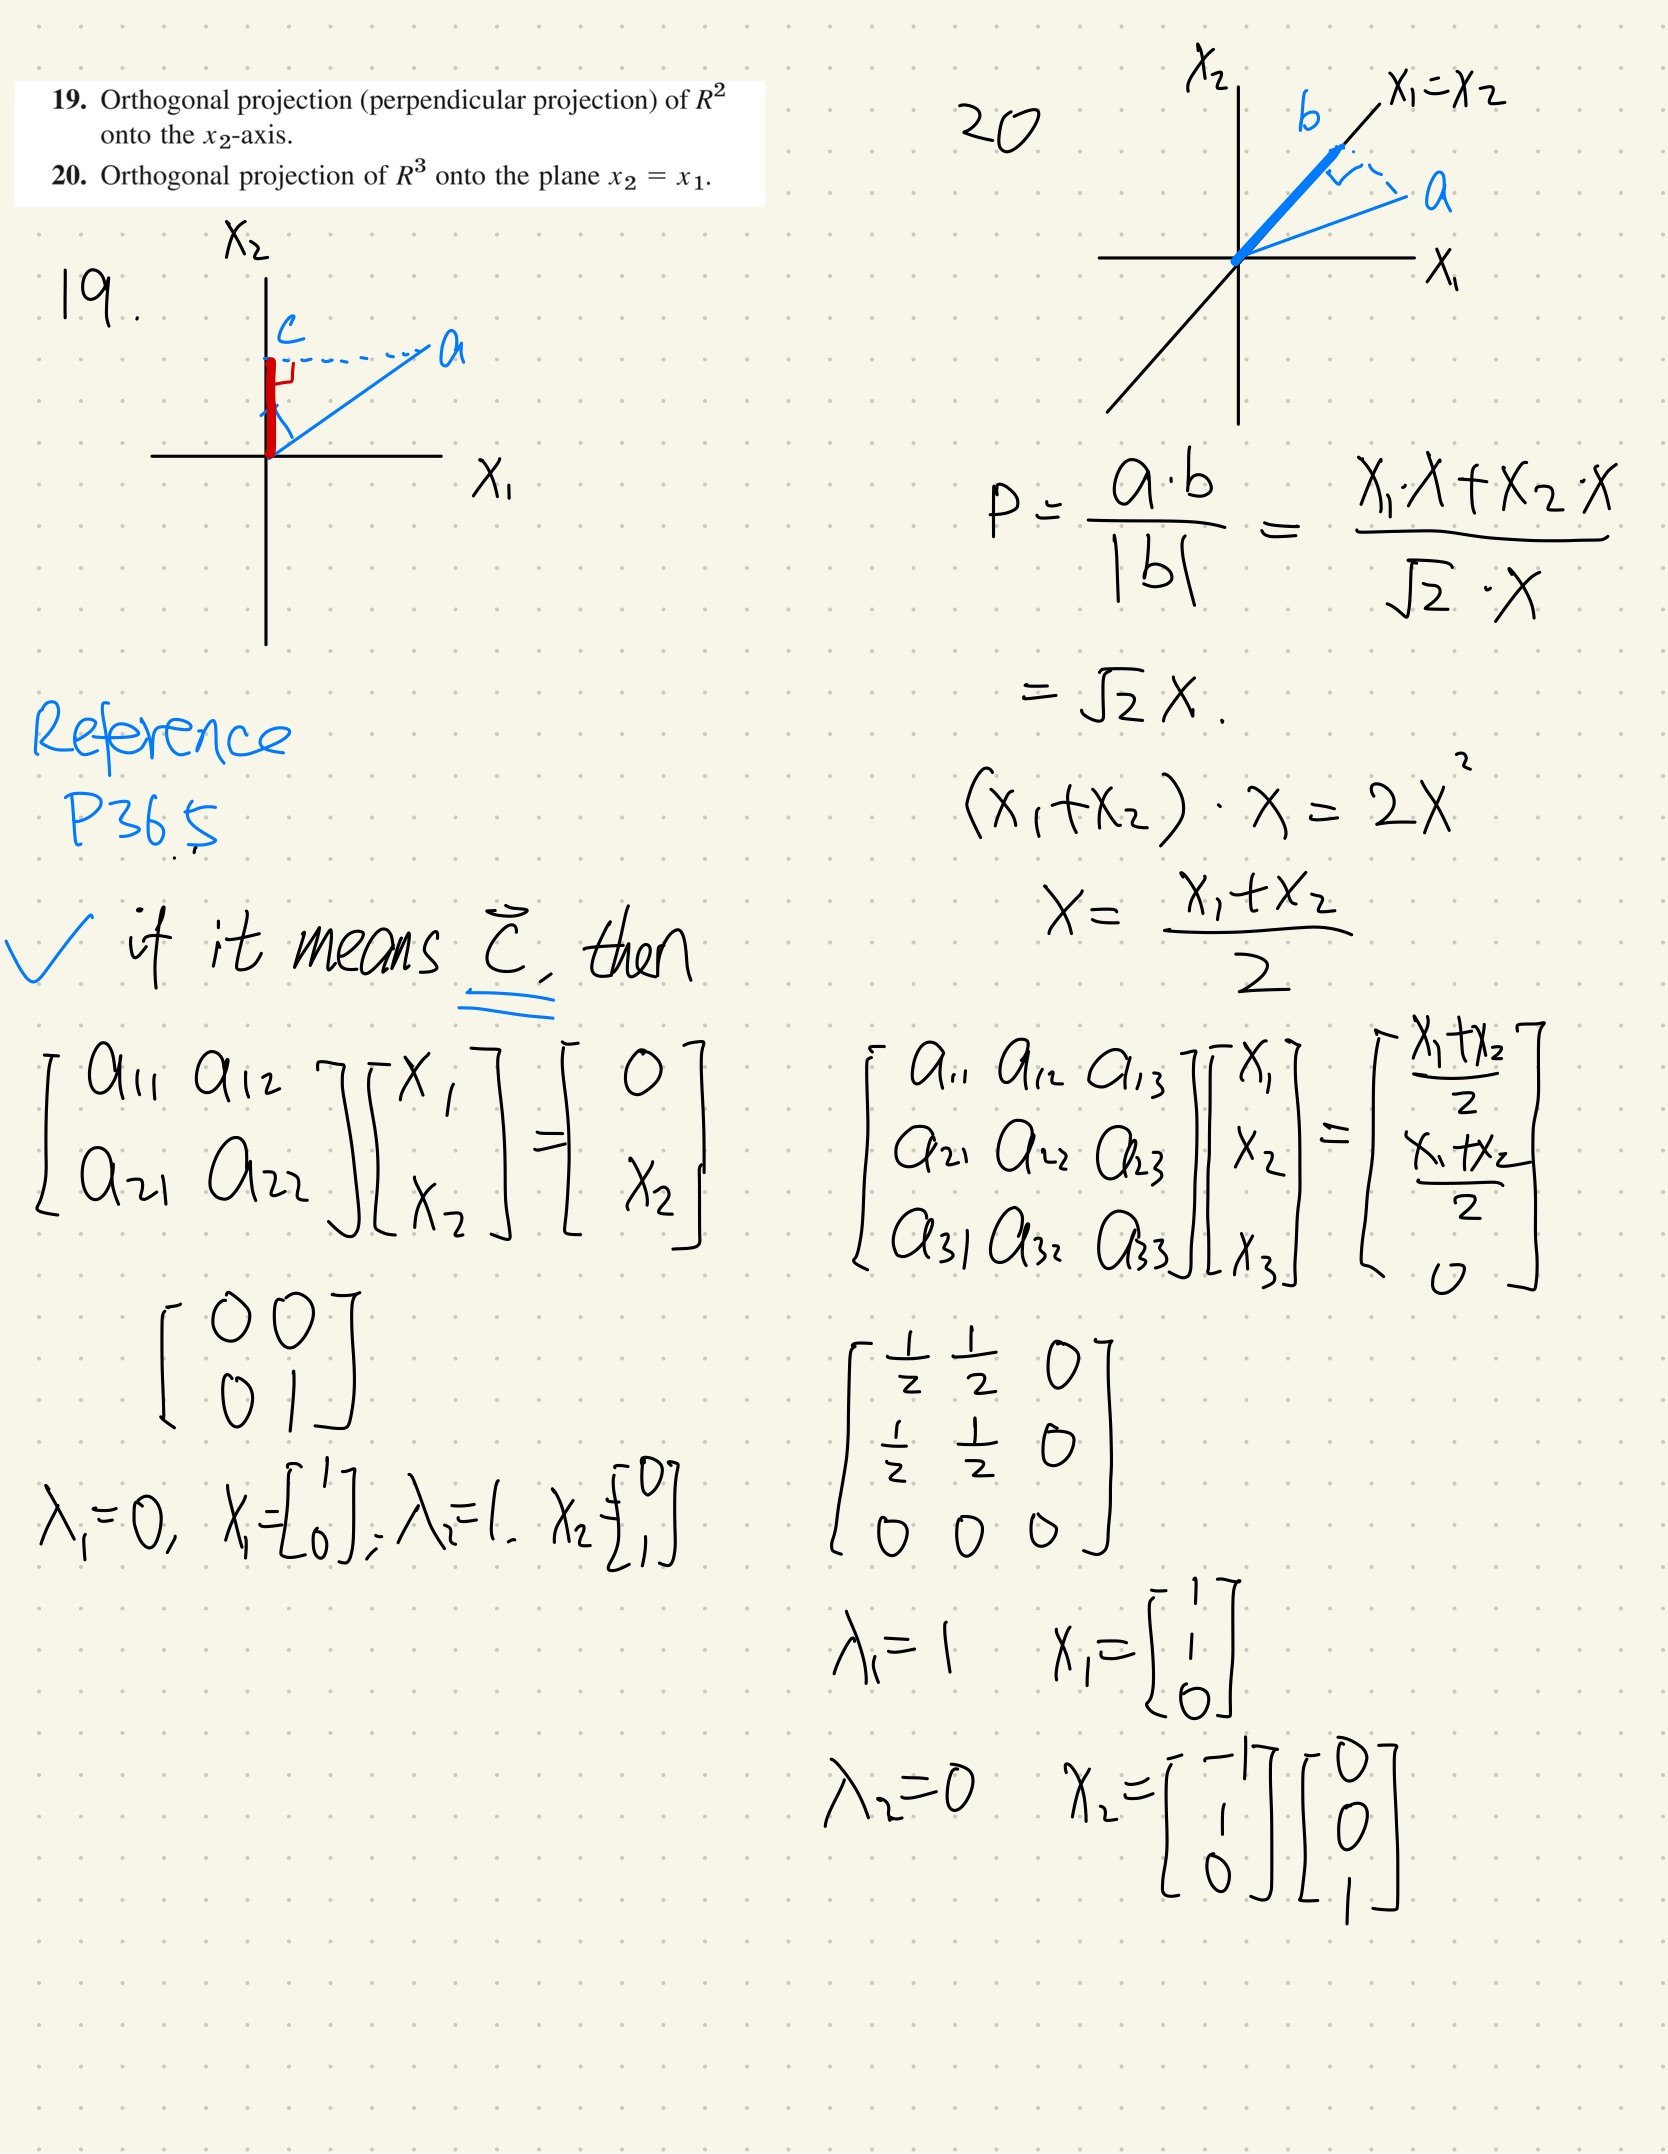 19. Orthogonal projection (perpendicular projection) of R²
onto the x₂-axis.
20. Orthogonal projection of R³ onto the plane x₂ = x₁.
19.
x₂
c
a
x₁
Reference
P365
✓ if it means c̄, then
[a₁₁ a₁₂; a₂₁ a₂₂] [x₁; x₂] = [0; x₂]
[0 0; 0 1]
λ₁=0, x₁=[1; 0]; λ₂=1. x₂=[0; 1]
20
x₂
x₁=x₂
b
a
x₁
P = a·b / |b| = (x₁·x + x₂·x) / (√2·x)
= √2 x.
(x₁+x₂)·x = 2x²
x = (x₁+x₂) / 2
[a₁₁ a₁₂ a₁₃; a₂₁ a₂₂ a₂₃; a₃₁ a₃₂ a₃₃] [x₁; x₂; x₃] = [(x₁+x₂)/2; (x₁+x₂)/2; 0]
[1/2 1/2 0; 1/2 1/2 0; 0 0 0]
λ₁=1 x₁=[1; 1; 0]
λ₂=0 x₂=[-1; 1; 0] [0; 0; 1]